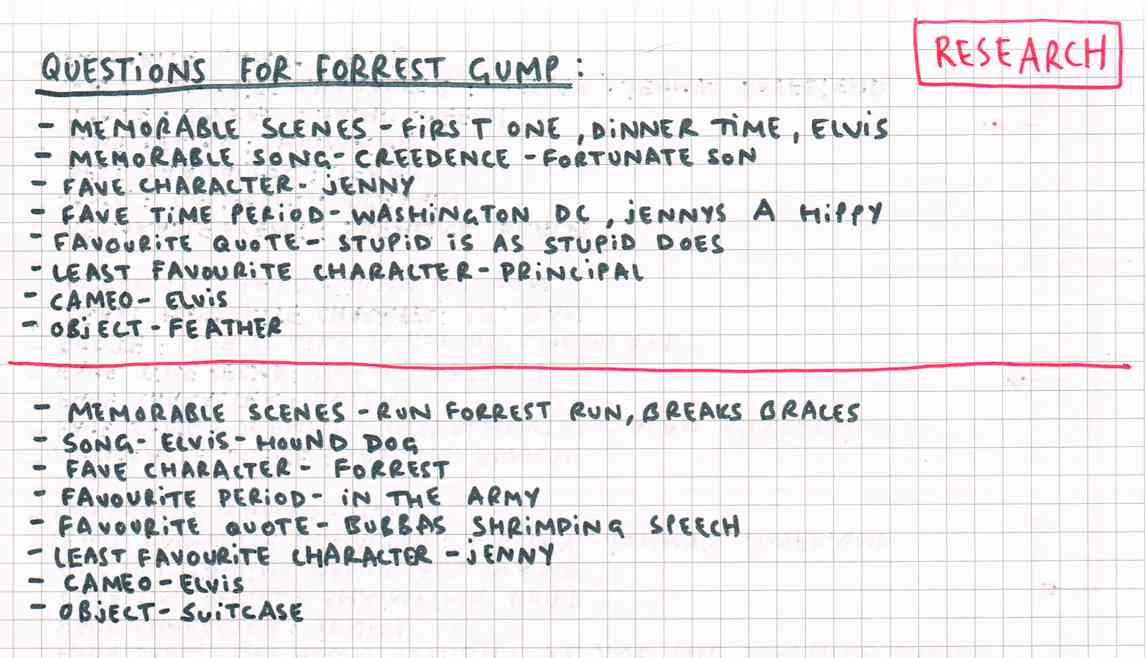 RESEARCH
QUESTIONS FOR FORREST GUMP:
- MEMORABLE SCENES - FIRST ONE, DINNER TIME, ELVIS
- MEMORABLE SONG - CREEDENCE - FORTUNATE SON
- FAVE CHARACTER - JENNY
- FAVE TIME PERIOD - WASHINGTON DC, JENNYS A HIPPY
- FAVOURITE QUOTE - STUPID IS AS STUPID DOES
- LEAST FAVOURITE CHARACTER - PRINCIPAL
- CAMEO - ELVIS
- OBJECT - FEATHER
- MEMORABLE SCENES - RUN FORREST RUN, BREAKS BRACES
- SONG - ELVIS - HOUND DOG
- FAVE CHARACTER - FORREST
- FAVOURITE PERIOD - IN THE ARMY
- FAVOURITE QUOTE - BUBBAS SHRIMPING SPEECH
- LEAST FAVOURITE CHARACTER - JENNY
- CAMEO - ELVIS
- OBJECT - SUITCASE